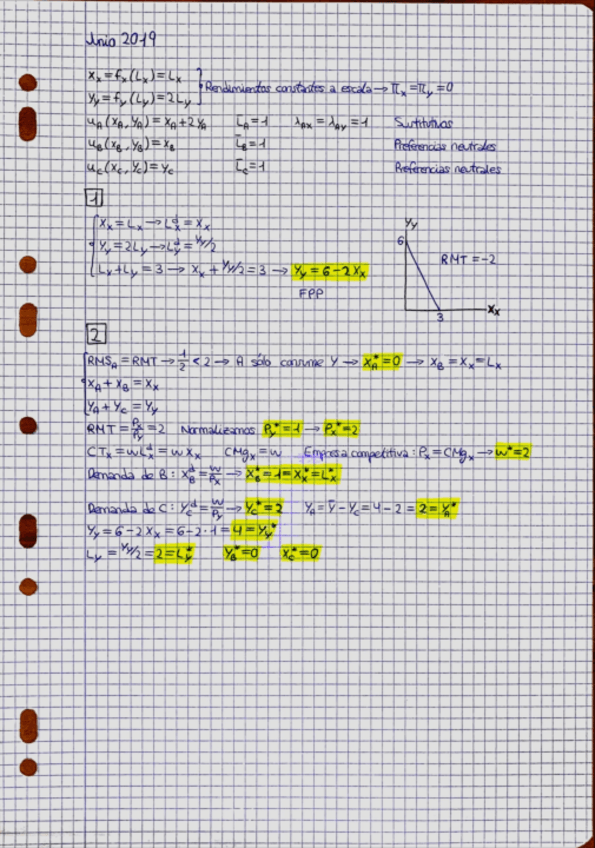 Junio 2019
Xx = fx(Lx) = Lx
Yy = fy(Ly) = 2Ly } Rendimientos constantes a escala → πx = πy = 0
uA(xA, yA) = xA + 2yA L̄A = 1 λAx = λAy = 1 Sustitutivos
uB(xB, yB) = xB L̄B = 1 Preferencias neutrales
uC(xC, yC) = yC L̄C = 1 Preferencias neutrales
1
Xx = Lx → Lxᵈ = Xx
Yy = 2Ly → Lyᵈ = Yy/2
Lx + Ly = 3 → Xx + Yy/2 = 3 → Yy = 6 - 2Xx
FPP
Yy
6
RMT = -2
3
Xx
2
RMSA = RMT → 1/2 < 2 → A sólo consume Y → XA* = 0 → XB = Xx = Lx
XA + XB = Xx
YA + YC = Yy
RMT = Px/Py = 2 Normalizamos Py* = 1 → Px* = 2
CTx = wLxᵈ = wXx CMgx = w Empresa competitiva: Px = CMgx → w* = 2
Demanda de B: XBᵈ = w/Px → XB* = 1 = Xx* = Lx*
Demanda de C: YCᵈ = w/Py → YC* = 2 YA = Ȳ - YC = 4 - 2 = 2 = YA*
Yy = 6 - 2Xx = 6 - 2·1 = 4 = Yy*
Ly = Yy/2 = 2 = Ly* YB* = 0 XC* = 0